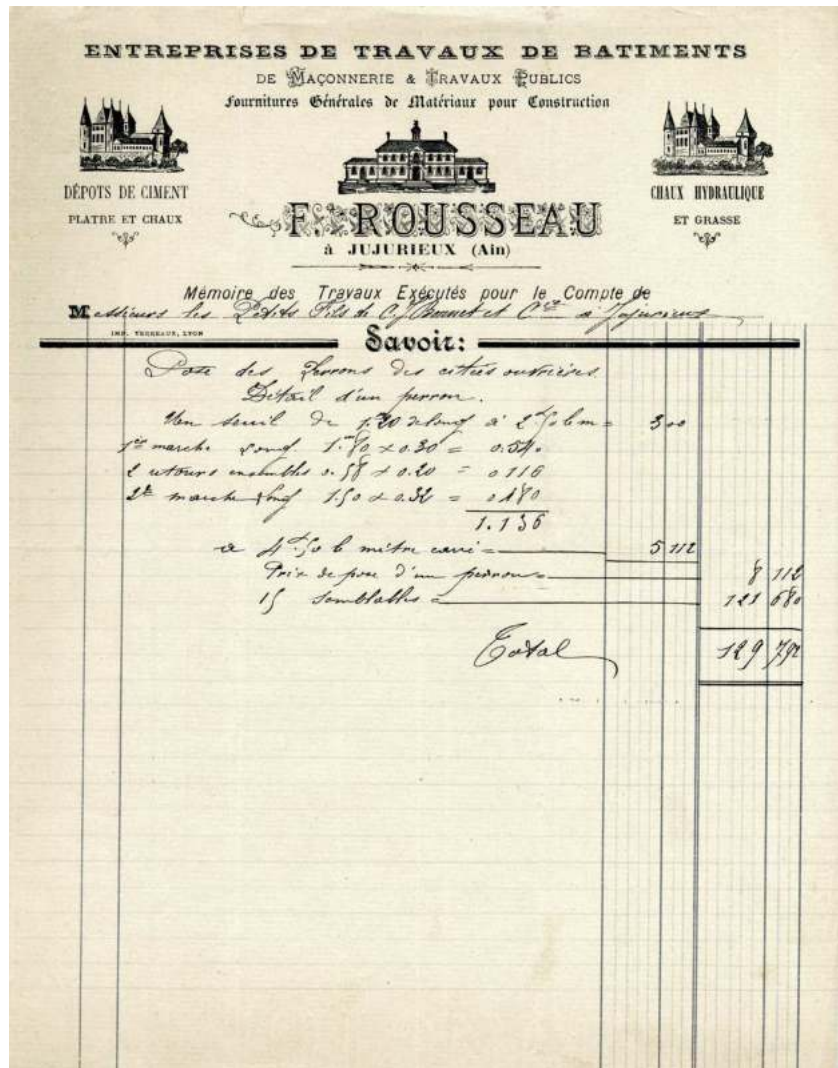 ENTREPRISES DE TRAVAUX DE BATIMENTS
DE MAÇONNERIE & TRAVAUX PUBLICS
Fournitures Générales de Matériaux pour Construction
DÉPOTS DE CIMENT
PLATRE ET CHAUX
CHAUX HYDRAULIQUE
ET GRASSE
F. ROUSSEAU
à JUJURIEUX (Ain)
Mémoire des Travaux Exécutés pour le Compte de
Messieurs les Petits Fils de C. J. Bonnet et Cie à Jujurieux
IMP. VERREAUX, LYON
Savoir:
Pose des Perrons des citées ouvrières.
Détail d'un perron.
Un seuil de 1.20 de long à 2f50 le m = 3 00
1re marche long 1.80 x 0.30 = 0.540
2 retours ensembles 0.58 x 0.20 = 0 116
2e marche long 1.50 x 0.32 = 0 480
1.136
à 4f50 le mètre carré = 5 112
Prix de pose d'un perron = 8 112
15 semblables = 121 680
Total 129 792